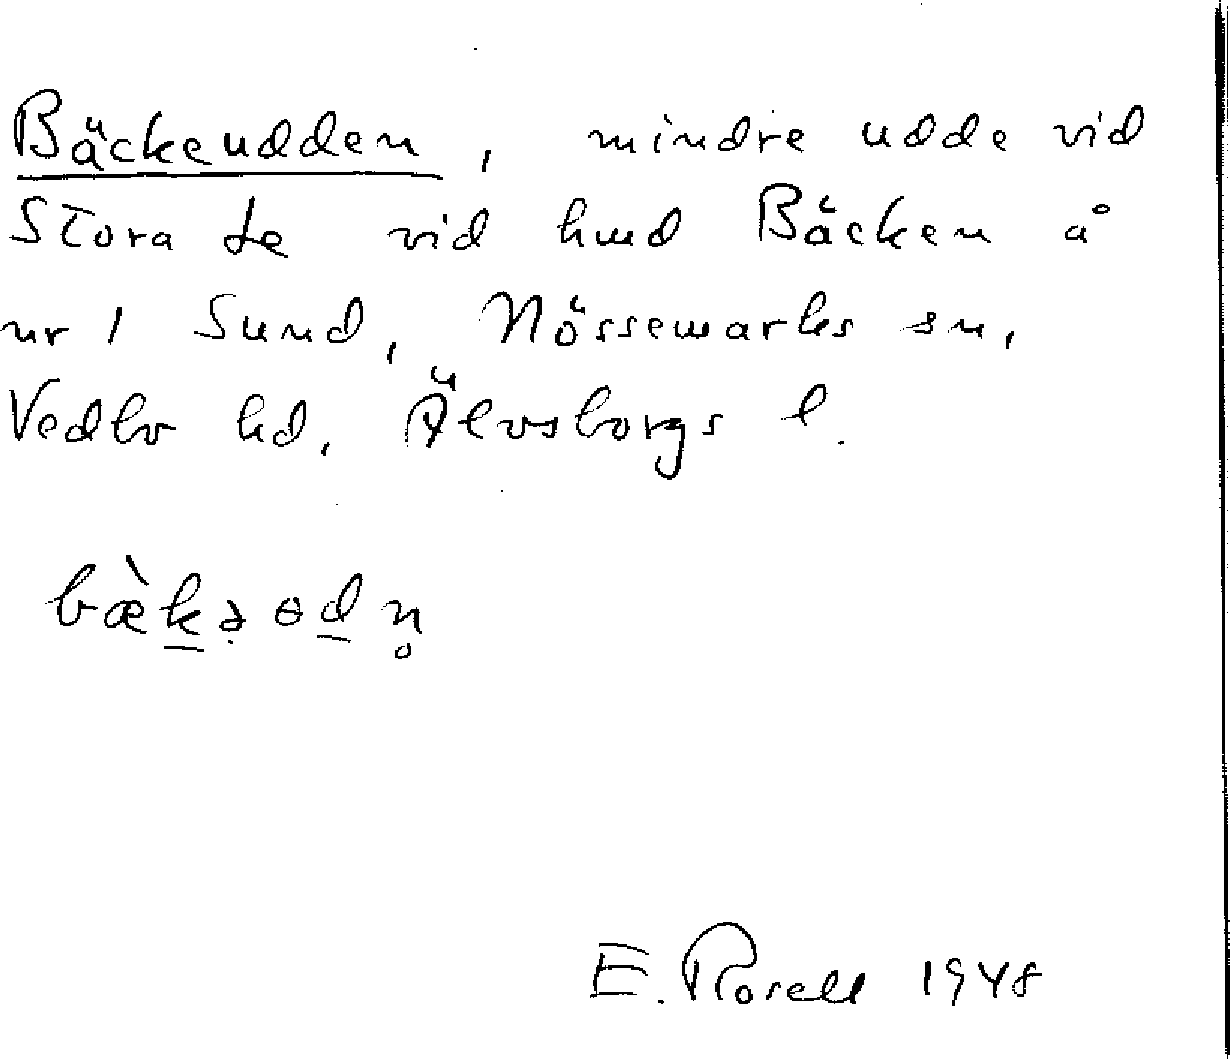 Bäckeudden, mindre udde vid
Stora Le vid hmd Bäcken å
nr 1 Sund, Nössemarks sn,
Vedbo hd, Älvsborgs l.
bæ̀k̲ə̣ɵd̲n̥
E. Rosell 1948